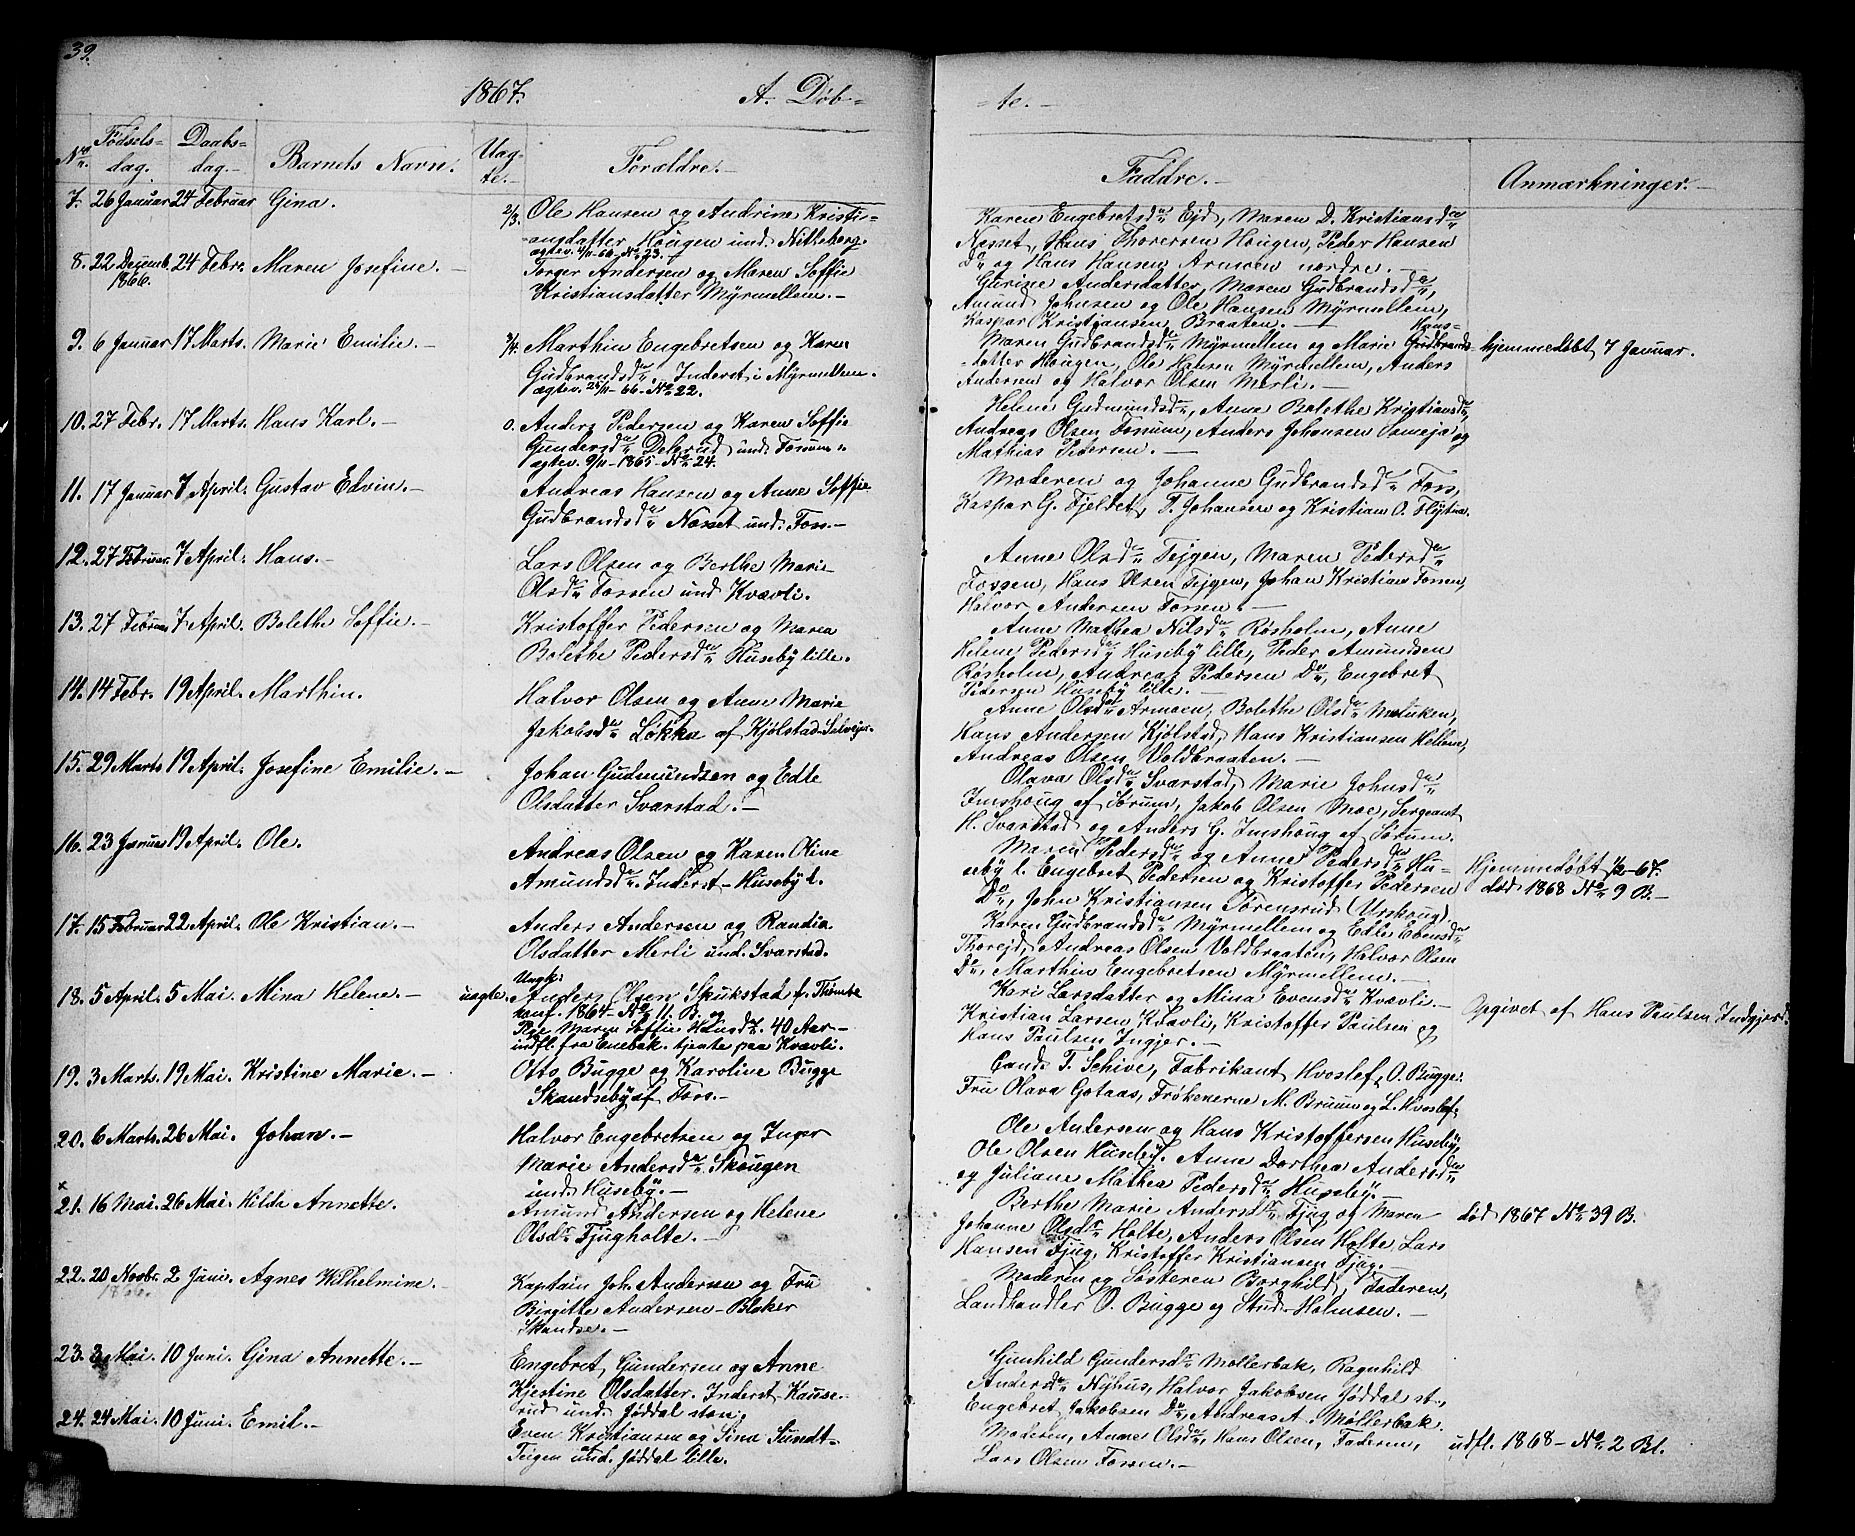 39.
1867. A. Døb-
-te.-
No. Fødsels-dag. Daabs-dag.- Barnets Navn. Uæg-te.- Forældre.- Faddre.- Anmærkninger.-
7. 26 Januar 24 Februar Gina. 2/3. Ole Hansen og Andrine Kristi-
-ansdatter Hougen und. Nitteberg.
ægtev. 4/11-66-No 23.
Karen Engebretsdr Ejd, Maren D. Kristiansdr
Nosset, Hans Thorersen Hougen, Peder Hansen
Do og Hans Hansen Armoen nordre.-
8. 22 Decemb. 1866. 24 Febr. Maren Josefine.- Torger Andersen og Maren Soffie
Kristiansdatter Myrmellem.-
Gurine Andersdatter, Maren Gudbrandsdr,
Amund Johnsen og Ole Hansen Myrmellem,
Kaspar Kristiansen Braaten.-
9. 6 Januar 17 Marts. Marie Emilie.- 7/4. Marthin Engebretsen og Karen
Gudbrandsdr. Inderst i Myrmellem.
ægtev. 25/11-66-No 22.
Maren Gudbrandsdr Myrmellem og Marie Hans-
-datter Hougen, Ole Hansen Myrmellem, Anders
Andersen og Halvor Olsen Merli.-
hjemmedøbt 7 Januar.
10. 27 Febr. 17 Marts. Hans Karl.- 0. Anders Pedersen og Karen Soffie
Gundersdr Delerud und. Fossum.
ægtev. 9/11-1865-No 24.
Helene Gudmundsdr, Anne Bolethe Kristiansdr,
Andreas Olsen Fossum, Anders Johansen Ismeja og
Mathias Pedersen.-
11. 17 Januar 7 April. Gustav Edvin.- Andreas Hansen og Anne Soffie
Gudbrandsdr Nosset und. Foss.-
Moderen og Johanne Gudbrandsdr Foss,
Kaspar G. Fjeldet, T. Johansen og Kristian O. Fløjten.
12. 27 Februar. 7 April. Hans.- Lars Olsen og Berthe Marie
Olsdr Fossen und Kvævli.-
Anne Olsdr Tejgen, Maren Pedersdr
Fossen, Hans Olsen Tejgen, Johan Kristians Fossen,
Halvor Andersen Fossen.-
13. 27 Februar 7 April. Bolethe Soffie.- Kristoffer Pedersen og Maren
Bolethe Pedersdr Huseby lille.
Anne Mathea Nilsdr Røsholm, Anne
Helene Pedersdr Huseby lille, Peder Amundsen
Røsholm, Andreas Pedersen Do, Engebret
Pedersen Huseby lille.-
14. 14 Febr. 19 April. Marthin. Halvor Olsen og Anne Marie
Jakobsdr Løkka af Kjølstad
Anne Olsdr Armoen, Bolethe Olsdr
Hans Andersen Kjølstad, Hans Kristiansen Hellene,
Andreas Olsen Voldbraaten.-
15. 29 Marts 19 April. Josefine Emilie.- Johan Gudmundsen og Edle
Olsdatter Svarstad.-
Olava Olsdr Svarstad, Marie Johnsdr
Imshoug af Sørum, Jakob Olsen Moe, Sergeant
H. Svarstad og Anders G. Imshoug af Sørum.
16. 23 Januar 19 April. Ole. Andreas Olsen og Karen Oline
Amundsdr. Inderst-Huseby l.
Maren Pedersdr og Anne Pedersdr Hu-
seby l. Engebret Pedersen og Kristoffer Pedersen
Do, John Kristiansen Sørensrud (Urskoug).
Hjemmedøbt 1/2-67.
død 1868 No 9 B.-
17. 15 Februar 22 April. Ole Kristian.- Anders Andersen og Randia
Olsdatter Merli und. Svarstad.
Karen Gudbrandsdr Myrmellem og Edle Evensdr
Thorejd, Andreas Olsen Voldbraaten, Halvor Olsen
Do, Marthin Engebretsen Myrmellem.-
18. 5 April. 5 Mai. Mina Helene.- uægte. Ungk.
Anders Olsen Spukstad f. Thombe
konf. 1864-No 11. B. og
Pige Maren Soffie Hansdr. 40 Aar-
indfl. fra Enebak. tjente paa Kvævli.
Kari Larsdatter og Mina Evensdr Kvævli.-
Kristian Larsen Kvævli, Kristoffer Paulsen og
Hans Paulsen Ingjer.-
Opgivet af Hans Paulsen Indgjerd.
19. 3 Marts. 19 Mai. Kristine Marie.- Otto Bugge og Karoline Bugge
Skandseby af Foss.-
Cand. T. Schive, Fabrikant Hvoslef, O. Bugge.
Fru Olava Gotaas, Frøkenerne M. Bruun og L. Hvoslef.
20. 6 Marts. 26 Mai. Johan.- Halvor Engebretsen og Inger
Marie Andersdr Skougen
und. Huseby.-
Ole Andersen og Hans Kristoffersen Huseby,
Ole Olsen Huseby. Anne Dorthea Andersdr
og Juliane Mathea Pedersdr Huseby.-
x
21. 16 Mai. 26 Mai. Hilda Annette. Amund Andersen og Helene
Olsdr Fjugholte.-
Berthe Marie Andersdr Fjug og Maren
Johanne Olsdr Holte, Anders Olsen Holte, Lars
Hansen Fjug, Kristoffer Kristiansen Fjug.-
død 1867 No 39 B.
22. 20 Novbr. 1866. 2 Juni. Agnes Wilhelmine. Kaptain Joh. Andersen og Fru
Birgitte Andersen-Blaker
Skandse.-
Moderen og Søsteren Borghild, Faderen,
Landhandler O. Bugge og Stud. Holmsen.-
23. 3 Mai. 10 Juni. Gina Annette.- Engebret Gundersen og Anne
Kjestine Olsdatter. Inderst Kause-
rud und. Jøddal store.
Gunhild Gundersdr Møllerbak, Ragnhild
Andersdr Nyhus, Halvor Jakobsen Jøddal st.,
Engebret Jakobsen Do, Andreas A. Møllerbak.
24. 24 Mai. 10 Juni. Emil.- Even Kristiansen og Sina Sundt-
Teigen und. Jøddal lille.
Moderen, Anne Olsdr, Hans Olsen, Faderen,
Lars Olsen Fossen.-
udfl. 1868-No 2 Bl.